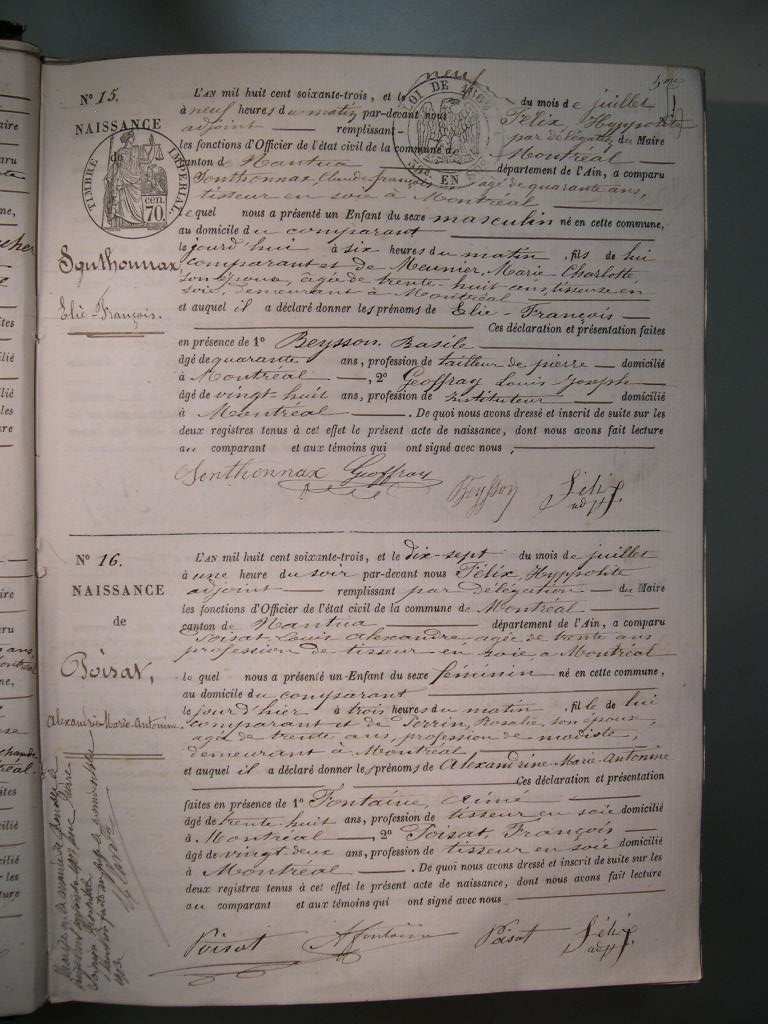 N° 15.
NAISSANCE
de
TIMBRE IMPERIAL
70 cen.
Sonthonnax,
Elie-François.
L'AN mil huit cent soixante-trois, et le neuf du mois de juillet
à neuf heures du matin par-devant nous Félix, Hyppolite
adjoint remplissant par délégation du Maire
les fonctions d'Officier de l'état civil de la commune de Montréal
canton de Nantua département de l'Ain, a comparu
Sonthonnax, Claude-françois agé de quarante ans,
tisseur en soie à Montréal
lequel nous a présenté un Enfant du sexe masculin né en cette commune,
au domicile du comparant
le jourd'hui à six heures du matin, fils de lui
comparant et de Meunier, Marie-Charlotte
son épouse, agée de trente-huit ans, tisseuse en
soie, demeurant à Montréal
et auquel il a déclaré donner les prénoms de Elie-François
Ces déclaration et présentation faites
en présence de 1° Beysson Basile
âgé de quarante ans, profession de tailleur de pierre domicilié
à Montréal, 2° Geoffray Louis Joseph
âgé de vingt huit ans, profession de instituteur domicilié
à Montréal. De quoi nous avons dressé et inscrit de suite sur les
deux registres tenus à cet effet le présent acte de naissance, dont nous avons fait lecture
au comparant et aux témoins qui ont signé avec nous.
Sonthonnax Geoffray Beysson Félix adjt
N° 16.
NAISSANCE
de
Poisat,
Alexandrine-Marie-Antonine.
L'AN mil huit cent soixante-trois, et le dix-sept du mois de juillet
à une heure du soir par-devant nous Félix, Hyppolite
adjoint remplissant par délégation du Maire
les fonctions d'Officier de l'état civil de la commune de Montréal
canton de Nantua département de l'Ain, a comparu
Poisat Louis Alexandre agé de trente ans
profession de tisseur en soie à Montréal
lequel nous a présenté un Enfant du sexe féminin né en cette commune,
au domicile du comparant
le jour d'hier à trois heures du matin, fille de lui
comparant et de Perrin, Rosalie, son épouse,
agée de trente ans, profession de modiste,
demeurant à Montréal
et auquel il a déclaré donner les prénoms de Alexandrine-Marie-Antonine
Ces déclaration et présentation
faites en présence de 1° Fontaine, Aimé
âgé de trente huit ans, profession de tisseur en soie domicilié
à Montréal, 2° Poisat, François
âgé de vingt-deux ans, profession de tisseur en soie domicilié
à Montréal. De quoi nous avons dressé et inscrit de suite sur les
deux registres tenus à cet effet le présent acte de naissance, dont nous avons fait lecture
au comparant et aux témoins qui ont signé avec nous
Poisat A fontaine Poisat Félix adjt